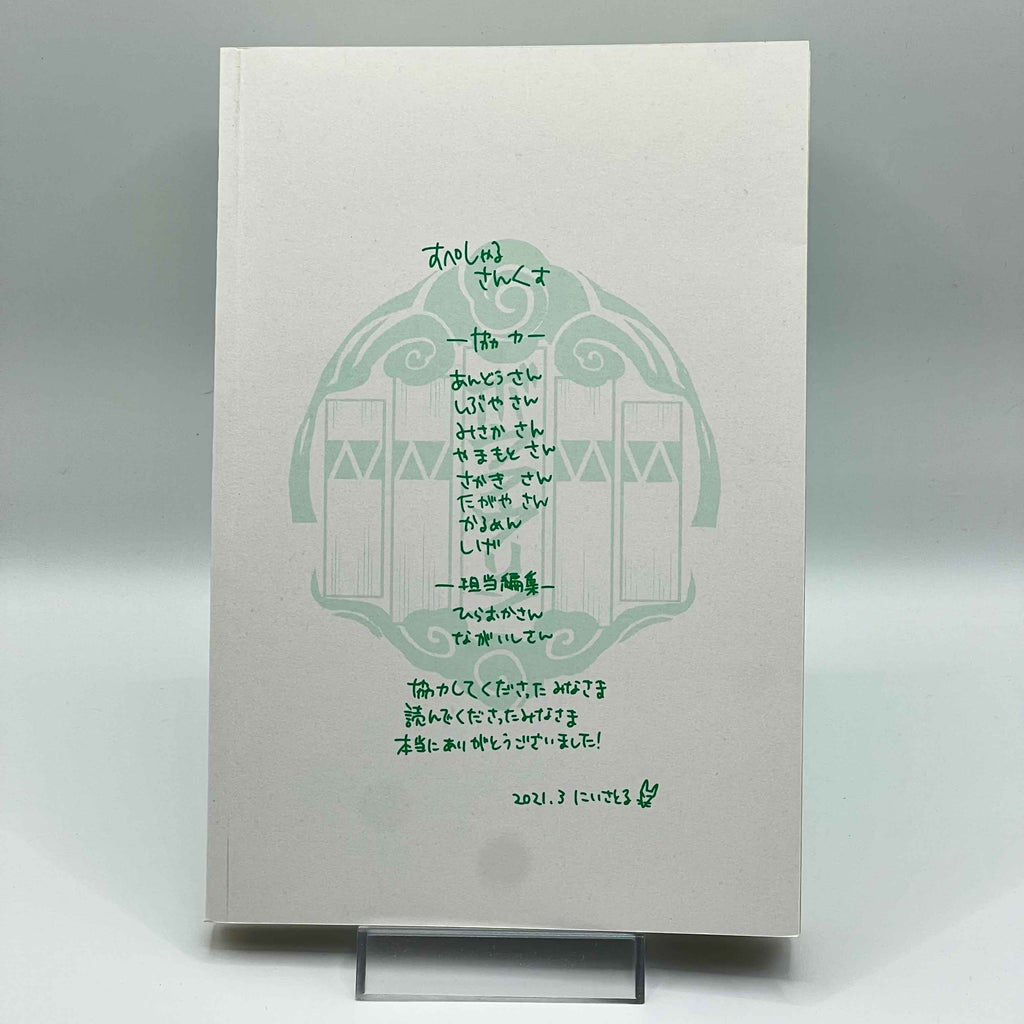 すぺしゃる
さんくす
ー協力ー
あんどうさん
しぶやさん
みさかさん
やまもとさん
さかきさん
たがやさん
かるめん
しげ
ー担当編集ー
ひらおかさん
ながいしさん
協力してくださったみなさま
読んでくださったみなさま
本当にありがとうございました!
2021.3 にいさとる